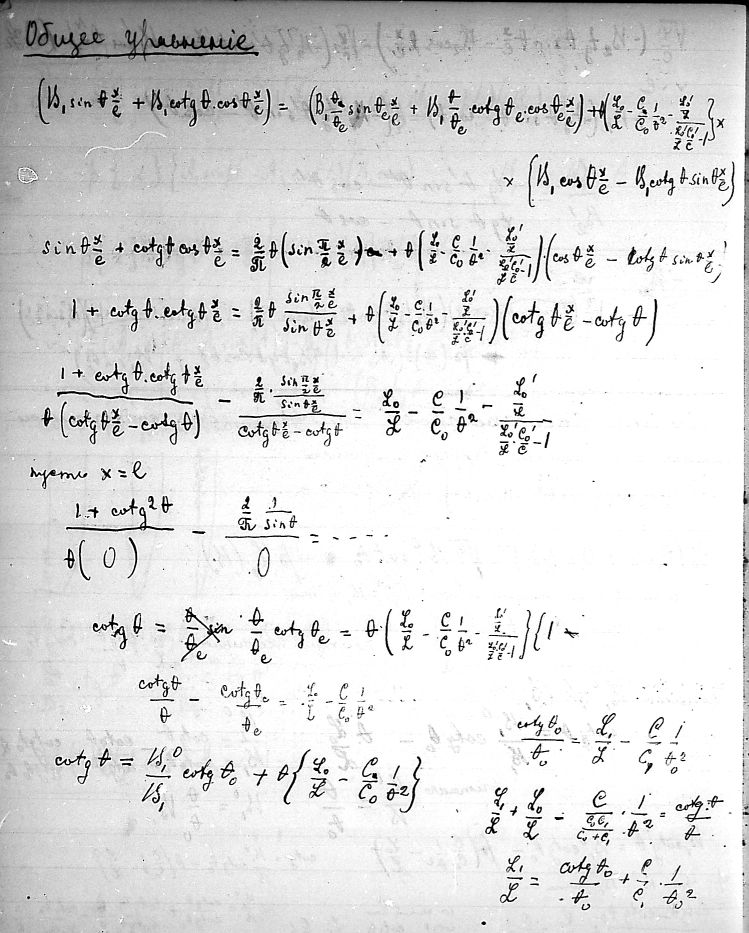 Общее уравненіе
(B₁ sin θ x/l + B₁ cotg θ · cos θ x/l) = (B₁ θ/θₑ sin θₑ x/l + B₁ θ/θₑ · cotg θₑ · cos θₑ x/l) + θ{L₀/L − C/C₀ 1/θ² − (L₀'/L)/(L₀'/L · C₀'/C − 1)} ×
× {B₁ cos θ x/l − B₁ cotg θ · sin θ x/l}
sin θ x/l + cotg θ cos θ x/l = 2/π θ (sin π/2 x/l) + θ (L₀/L − C/C₀ 1/θ² − (L₀'/L)/(L₀'/L C₀'/C − 1)) · (cos θ x/l − cotg θ sin θ x/l)
1 + cotg θ · cotg θ x/l = 2/π θ (sin π/2 x/l)/(sin θ x/l) + θ (L₀/L − C/C₀ 1/θ² − (L₀'/L)/(L₀'/L · C₀'/C − 1)) (cotg θ x/l − cotg θ)
(1 + cotg θ · cotg θ x/l)/(θ (cotg θ x/l − cotg θ)) − (2/π · (sin π/2 x/l)/(sin θ x/l))/(cotg θ x/l − cotg θ) = L₀/L − C/C₀ 1/θ² − (L₀'/L)/(L₀'/L · C₀'/C − 1)
пусть x = l
(1 + cotg² θ)/(θ (0)) − (2/π 1/sin θ)/0 = - - - - -
cotg θ = θ/θₑ sin θ/θₑ cotg θₑ = θ · (L₀/L − C/C₀ 1/θ² − (L₀'/L)/(L₀'/L C₀'/C − 1)}{1
cotg θ/θ − cotg θₑ/θₑ = L₀/L − C/C₀ 1/θ² ...
cotg θ₀/θ₀ = L₁/L − C/C₁ 1/θ₀²
cotg θ = B₁⁰/B₁ cotg θ₀ + θ{L₀/L − C/C₀ 1/θ²}
L₁/L + L₀/L − C/(C₀C₁/(C₀+C₁)) · 1/θ² = cotg θ/θ
L₁/L = cotg θ₀/θ₀ + C/C₁ · 1/θ₀²